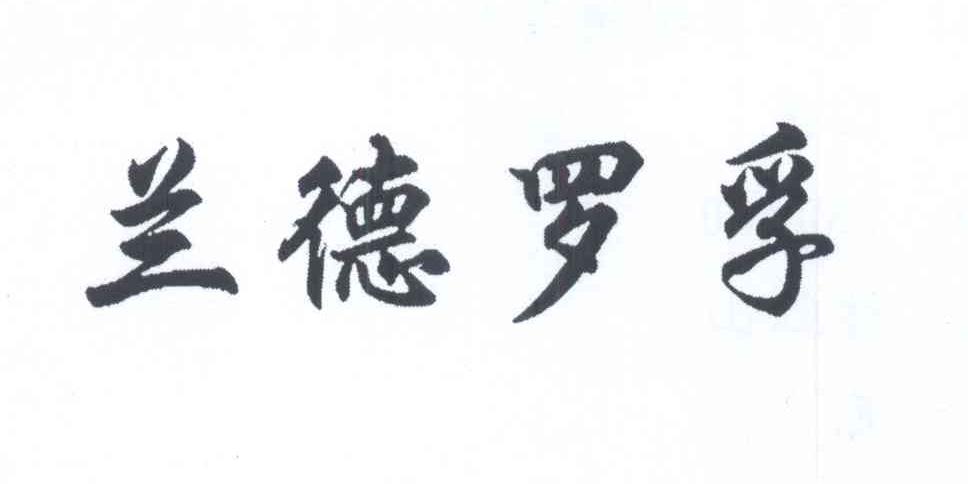 兰德罗孚